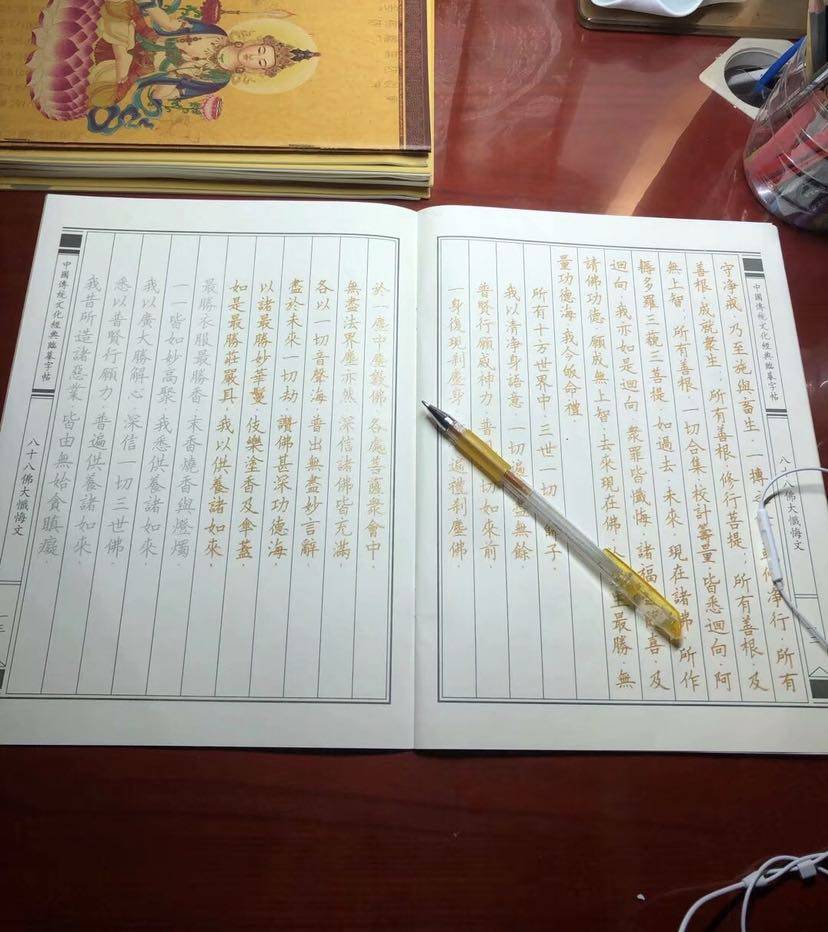 中國傳統文化經典臨摹字帖
佛大懺悔文
守淨戒·乃至施與畜生·一摶 淨行·所有
善根·成就衆生·所有善根·修行菩提·所有善根·及
無上智·所有善根·一切合集·校計籌量·皆悉迴向·阿
耨多羅三藐三菩提·如過去·未來·現在諸佛·所作
迴向·我亦如是迴向·衆罪皆懺悔·諸福 喜·及
請佛功德·願成無上智·去來現在佛· 生最勝·無
量功德海·我今皈命禮·
所有十方世界中·三世一切 師子·
我以清淨身語意·一切遍 無餘·
普賢行願威神力·普 切如來前·
一身復現刹塵身· 遍禮刹塵佛·
於一塵中塵數佛·各處菩薩衆會中·
無盡法界塵亦然·深信諸佛皆充滿·
各以一切音聲海·普出無盡妙言辭·
盡於未來一切劫·讚佛甚深功德海·
以諸最勝妙華鬘·伎樂塗香及傘蓋·
如是最勝莊嚴具·我以供養諸如來·
最勝衣服最勝香·末香燒香與燈燭·
一一皆如妙高聚·我悉供養諸如來·
我以廣大勝解心·深信一切三世佛·
悉以普賢行願力·普遍供養諸如來·
我昔所造諸惡業·皆由無始貪瞋癡·
中國傳統文化經典臨摹字帖
八十八佛大懺悔文